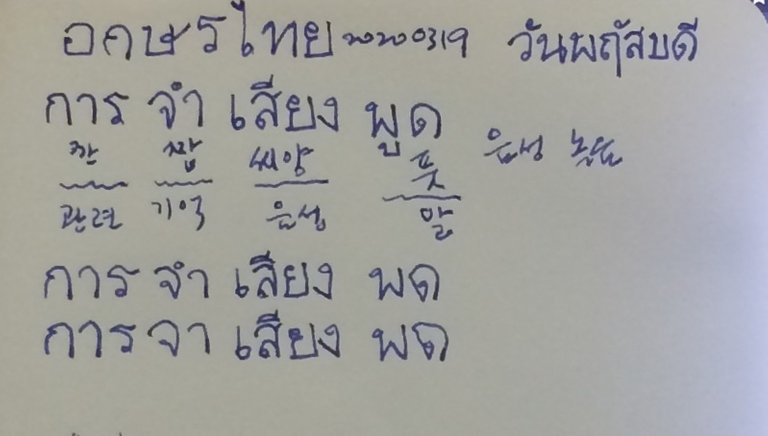 อักษรไทย 20200319 วันพฤัสบดี
การ จำ เสียง พูด
깐 짬 씨양 풋 음성
관련 기억 음성 말
การ จำ เสียง พด
การ จา เสียง พด